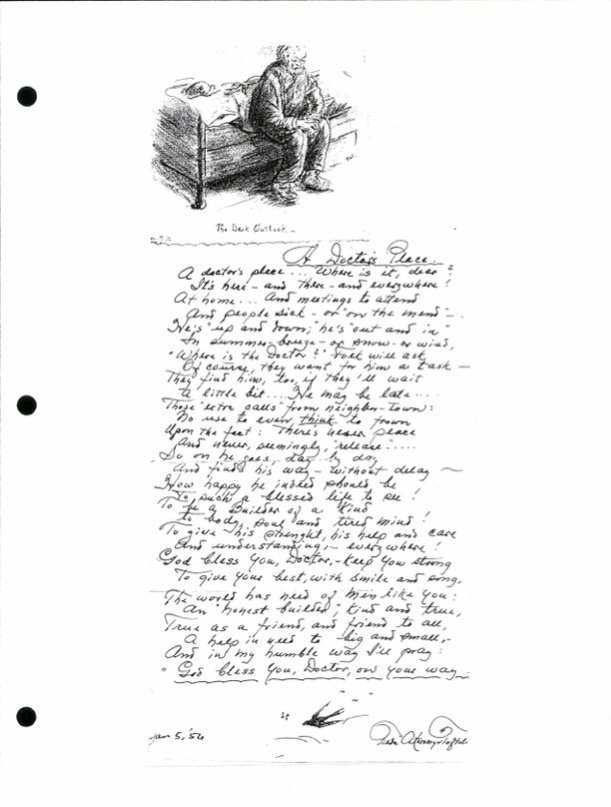 The Dark Outlook. –
A Doctor's Place.
A doctor's place ... Where is it, dear?
It's here – and there – and everywhere!
At home ... And meetings to attend
And people sick – or "on the mend" –
He's "up and down," he's "out and in"
In summer breeze – or snow – or wind,
"Where is the Doctor?" Folk will ask
Of course, they want for him a task –
They find him, too, if they'll wait
A little bit.... He may be late....
Those "extra calls" from neighbor-town:
No use to even think to frown
Upon the fact: There's never peace
And never, seemingly, "release".....
So on he goes, day by day
And finds his way – without delay –
How happy he indeed should be
To such a blessed life to see!
To be a Builder of a Kind
To body, soul and tired mind!
To give his strenght, his help and care
And understanding, – everywhere!
God bless You, Doctor, – Keep You strong
To give Your best, with smile and song,
The world has need of Men like You:
An "honest builder", kind and true,
True as a friend, and friend to all,
A help in need to big and small, –
And in my humble way I'll pray:
"God bless You, Doctor, on Your way.
Jan 5, '54